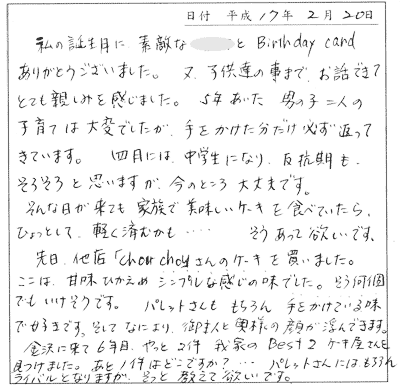 日付 平成17年2月20日
私の誕生日に、素敵な と Birthday card
ありがとうございました。又、子供達の事まで、お話できて
とても親しみを感じました。5年あいた 男の子二人の
子育ては大変でしたが、手をかけた分だけ必ず返って
きています。 四月には、中学生になり、反抗期も、
そろそろと思いますが、今のところ 大丈夫です。
そんな日が来ても 家族で美味しいケーキを食べていたら、
ひょっとして、軽く済むかも‥‥ そうあって欲しいです。
先日、他店「chou chouさんのケーキを買いました。
ここは、甘味ひかえめ シンプルな感じの味でした。そう何個
でもいけそうです。 パレットさんも もちろん 手をかけている味
で好きです。そして なにより、御主人と奥様の顔が浮んできます。
金沢に来て6年目、やっと2件 我家のBest 2 ケーキ屋さんを
見つけました。あと1件はどこですか?‥‥ パレットさんにはもちろん
ライバルとなりますが、そっと教えて欲しいです。